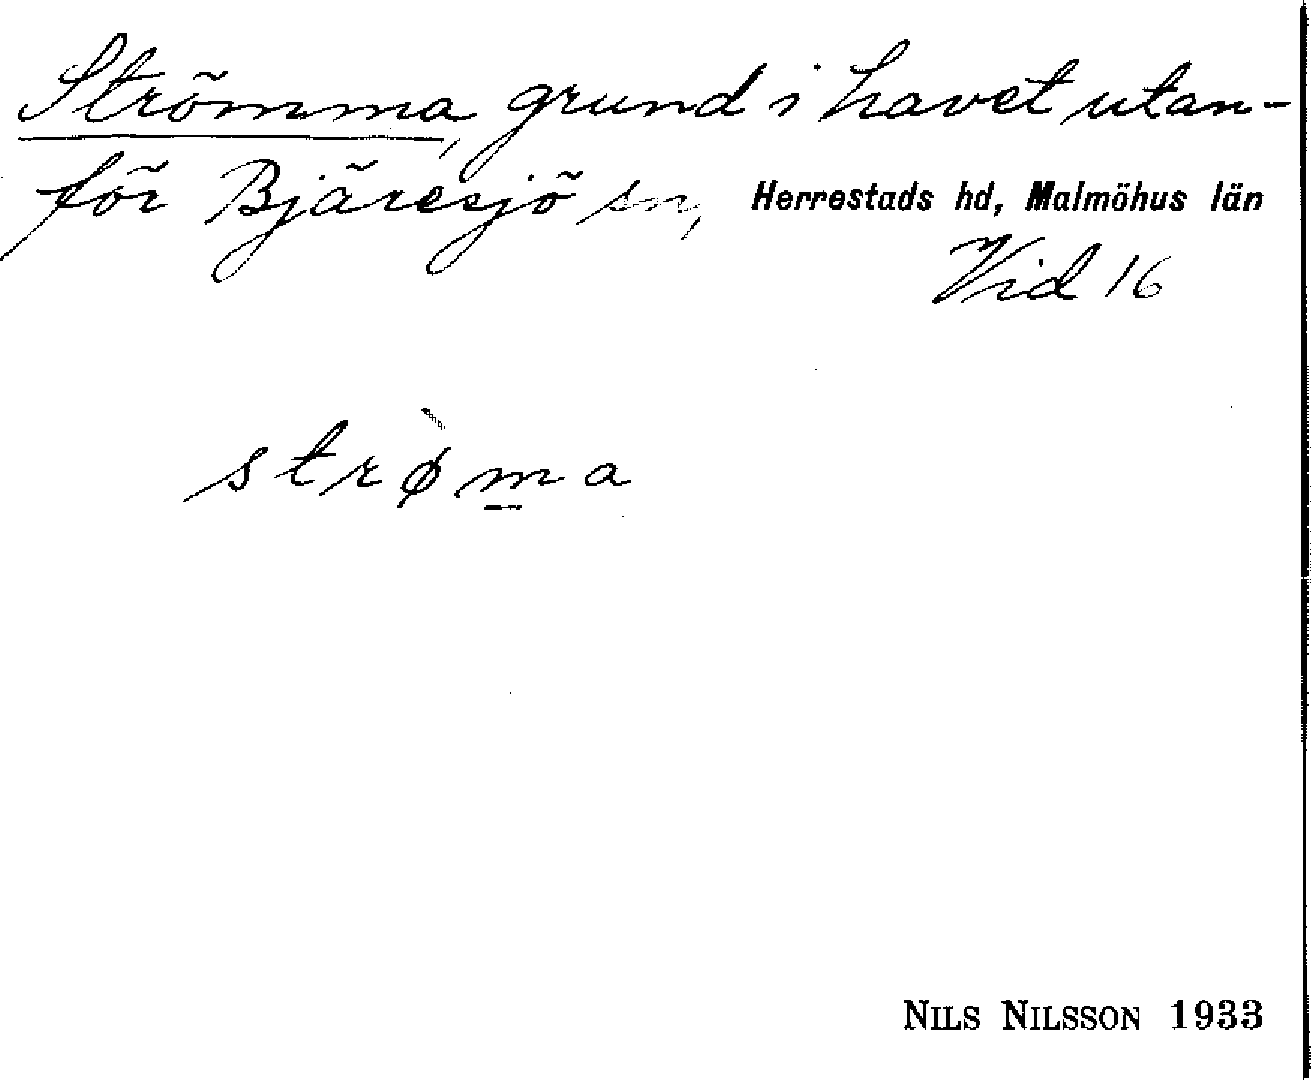 Strömma, grund i havet utan-
för Bjäresjö sn, Herrestads hd, Malmöhus län
Vid 16
strø̀m̲a
NILS NILSSON 1933